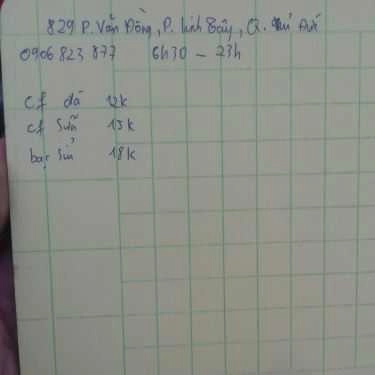 829 P. Văn Đồng, P. Linh Tây, Q. Thủ Đức
0906 823 877 6h30 - 23h
cf đá 12k
cf sữa 15k
bạc sỉu 18k